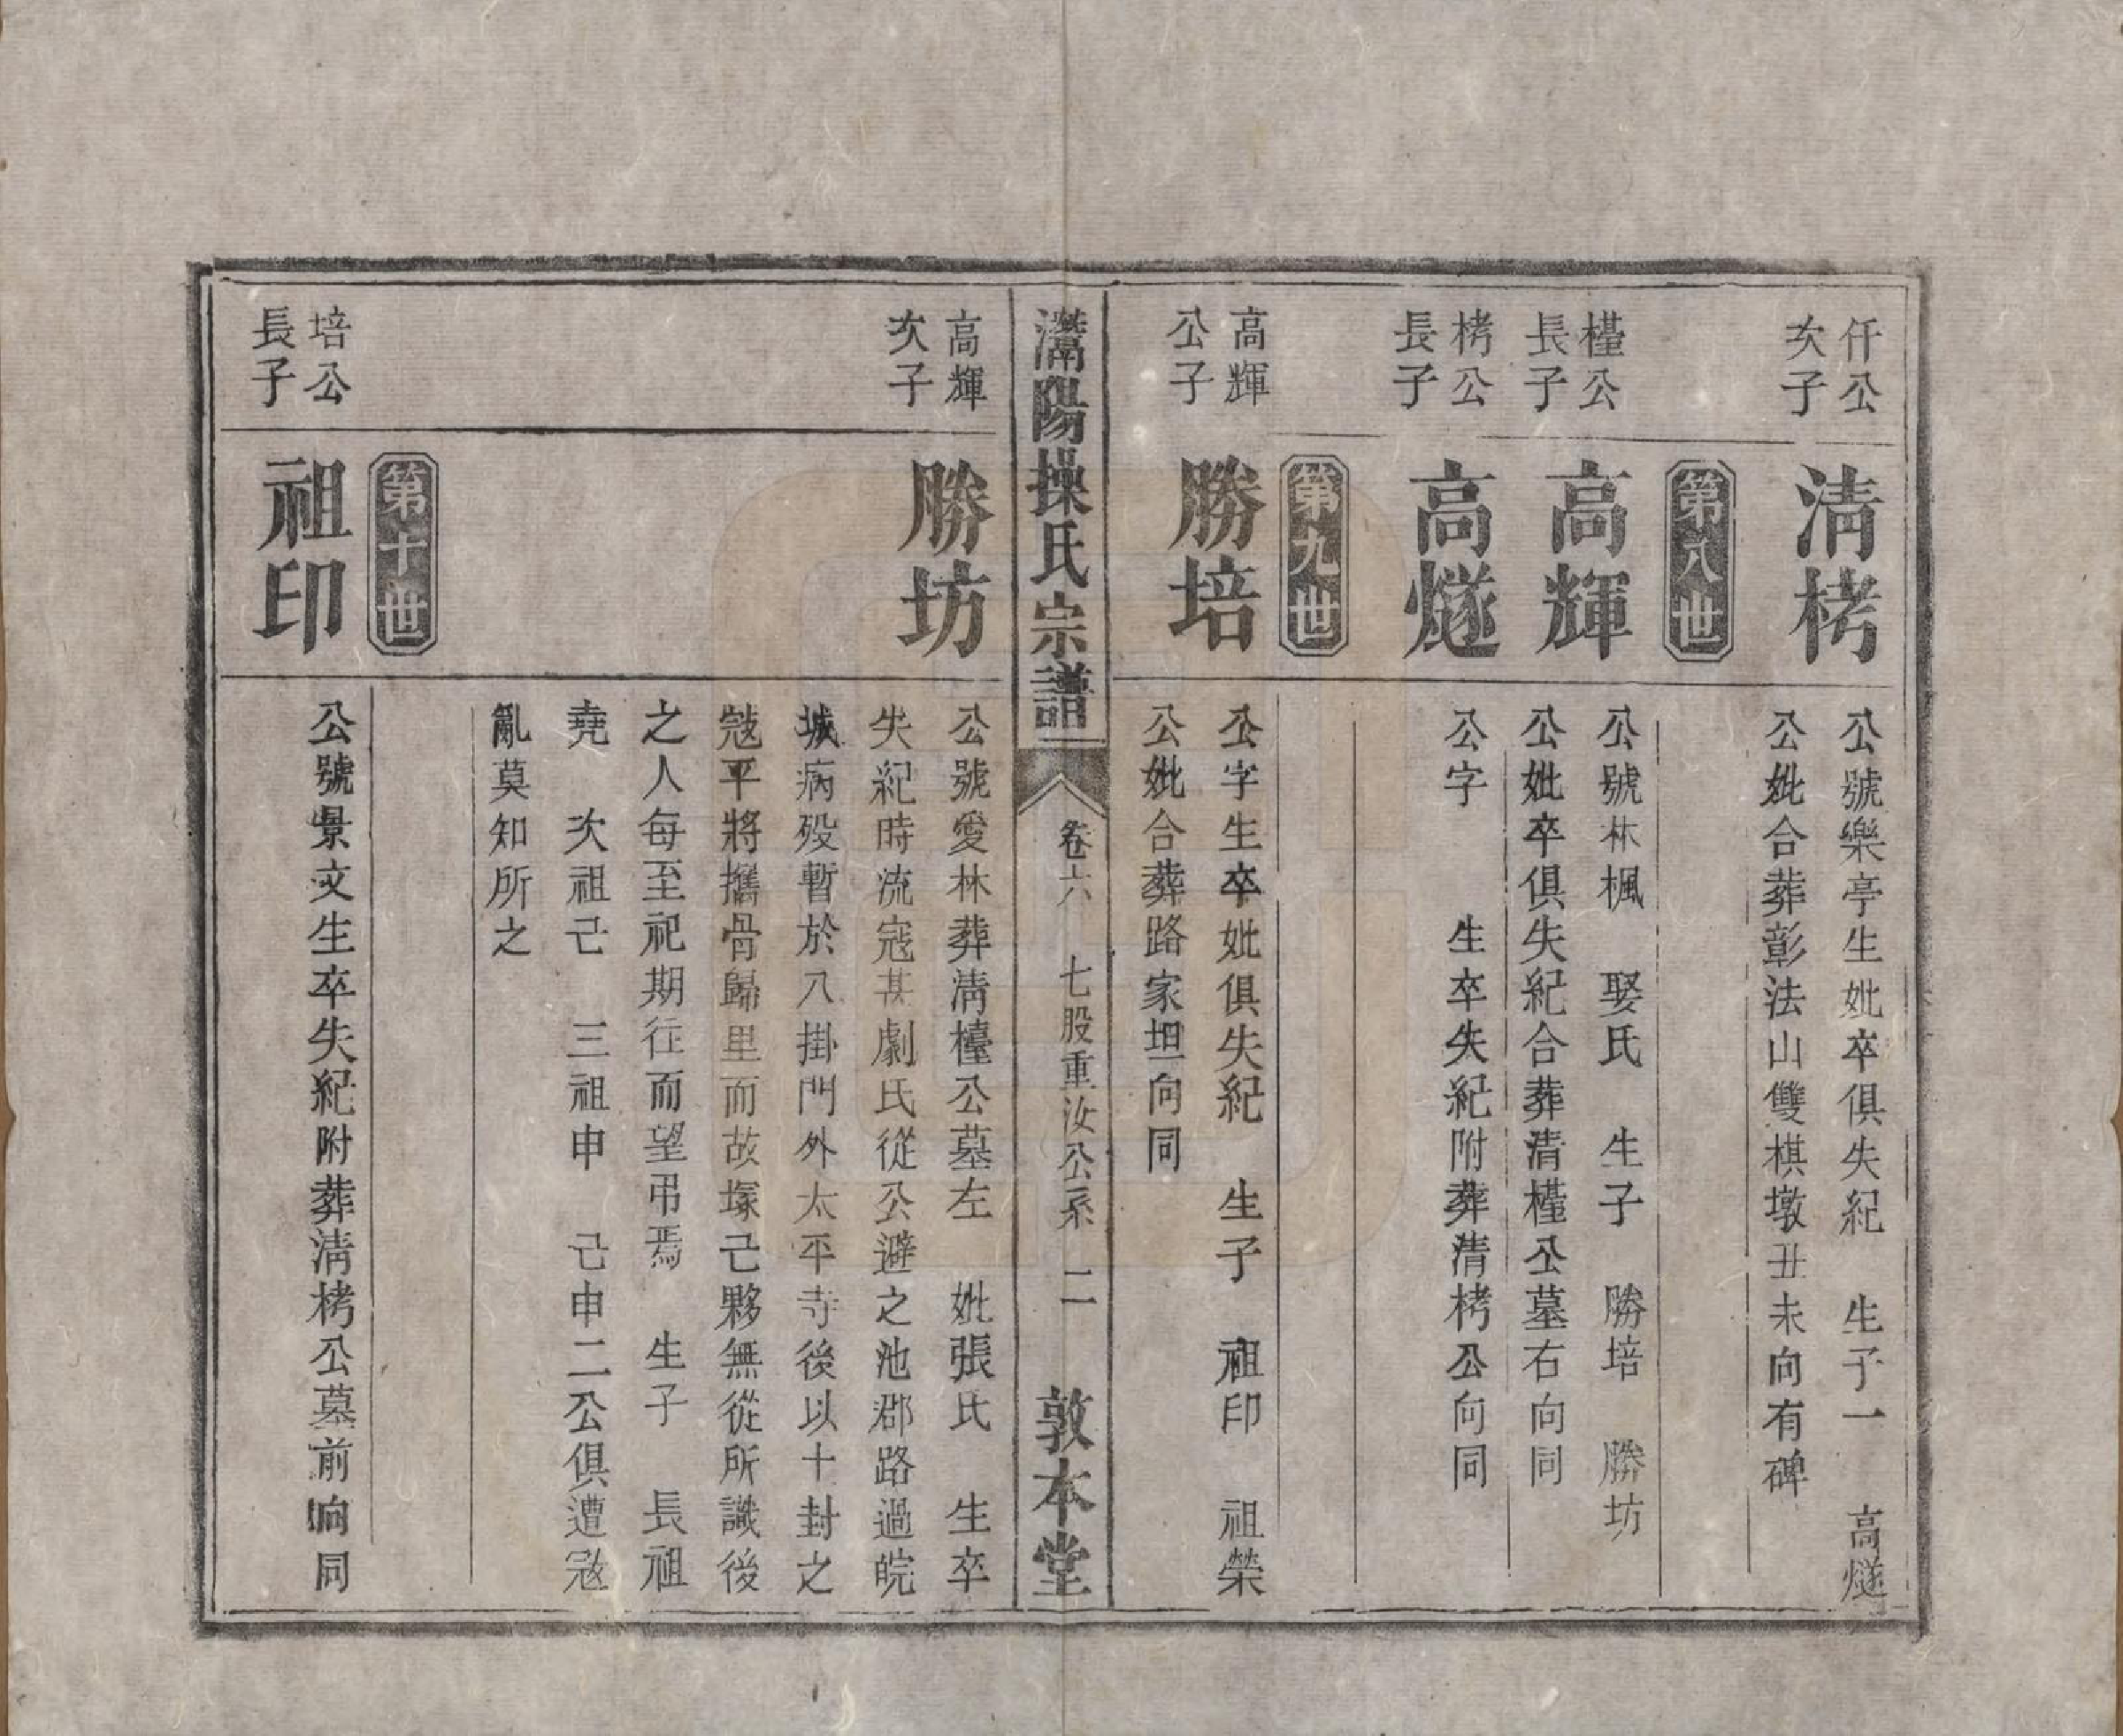 仟公
次子
清栲
公號樂亭生妣卒俱失紀　生子一　高燧
公妣合葬彰法山雙棋墩丑未向有碑
第八世
檯公
長子
高輝
公號林楓　娶氏　生子　勝培　勝坊
公妣卒俱失紀合葬清檯公墓右向同
栲公
長子
高燧
公字　　生卒失紀附葬清栲公向同
第九世
高輝
公子
勝培
公字生卒妣俱失紀　生子　祖印　祖榮
公妣合葬路家坦向同
灊陽操氏宗譜
卷六　七股重汝公系　二
敦本堂
高輝
次子
勝坊
公號愛林葬清檯公墓左　妣張氏　生卒
失紀時流寇甚劇氏從公避之池郡路過皖
城病歿暫於八掛門外太平寺後以十封之
冦平將攜骨歸里而故塚已夥無從所識後
之人每至祀期往而望弔焉　生子　長祖
堯　次祖己　三祖申　己申二公俱遭冦
亂莫知所之
第十世
培公
長子
祖印
公號景文生卒失紀附葬清栲公墓前向同